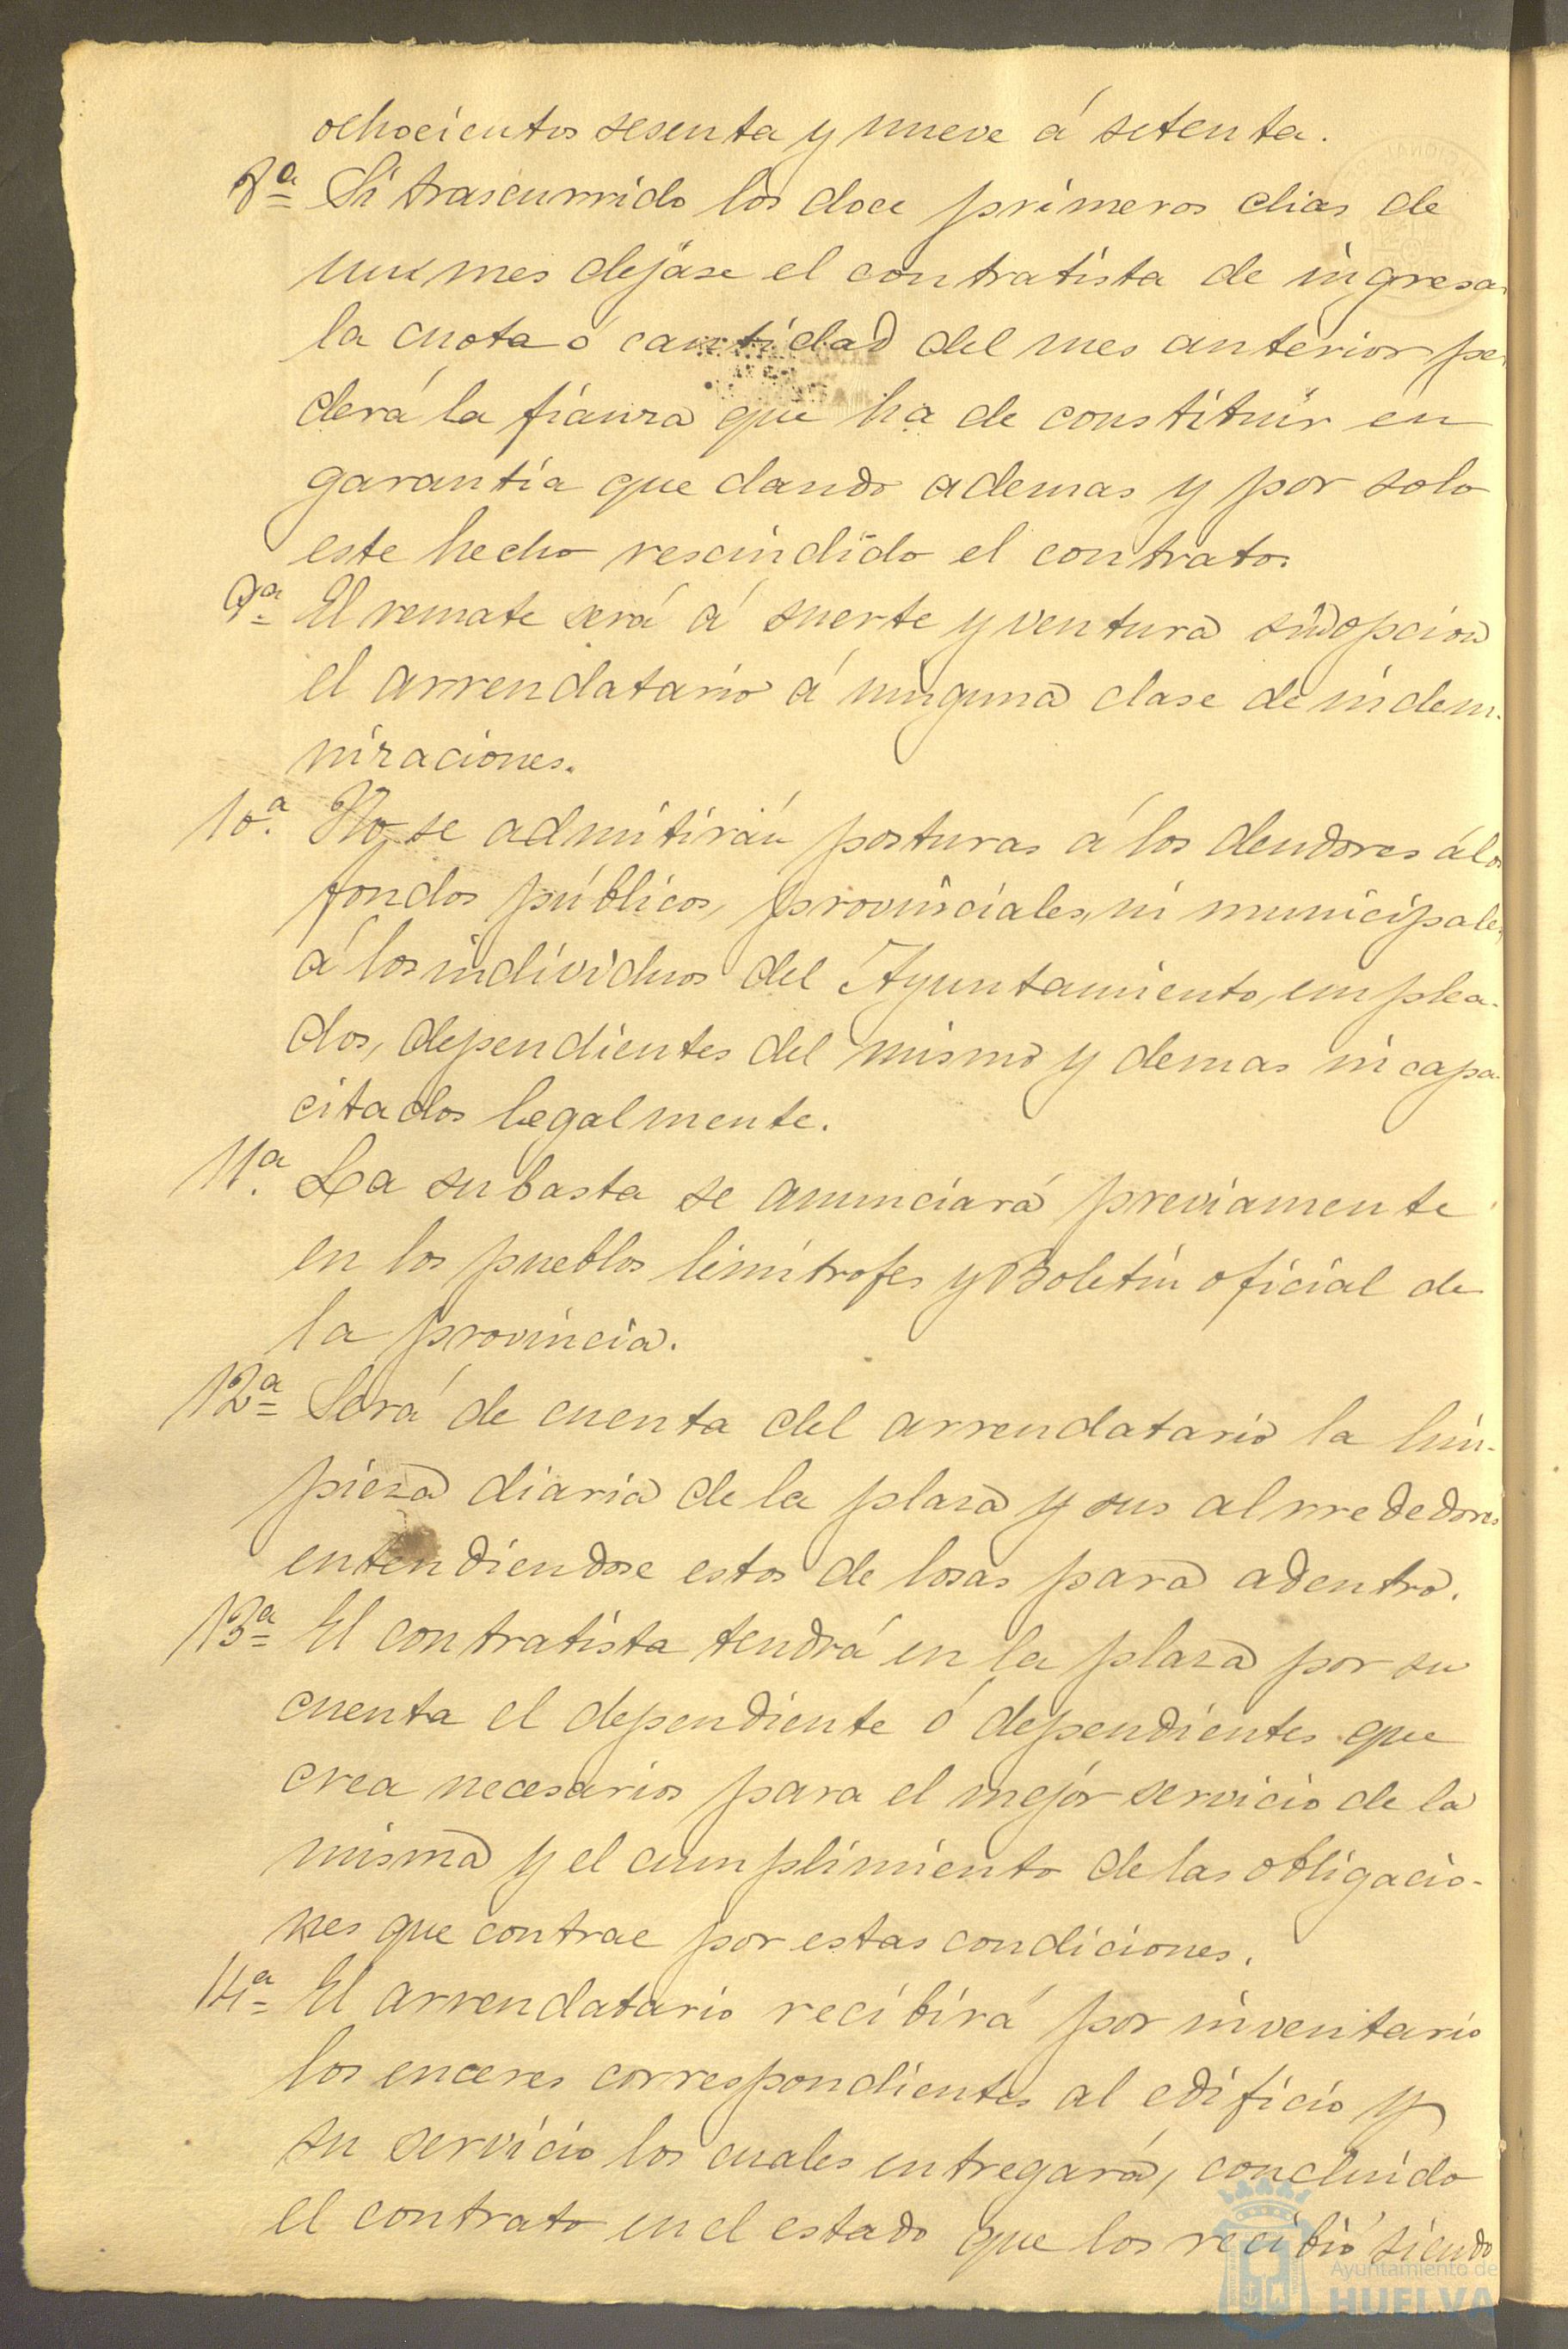 ochocientos sesenta y nueve á setenta.
8ª Si trascurrido los doce primeros dias de
un mes dejáse el contratista de ingresar
la cuota ó cantidad del mes anterior per
derá la fianza que ha de constituir en
garantía que dando ademas y por solo
este hecho rescindido el contrato.
9ª El remate será á suerte y ventura sin opcion
el arrendatario á ninguna clase de indem-
nizaciones.
10ª. No se admitirán posturas á los deudores á los
fondos públicos, provinciales, ni municipales,
á los individuos del Ayuntamiento, emplea-
dos, dependientes del mismo y demas incapa-
citados legalmente.
11ª. La subasta se anunciará previamente
en los pueblos limítrofes y Boletin oficial de
la provincia.
12ª Será de cuenta del arrendatario la lim-
pieza diaria de la plaza y sus alrrededores
entendiendose estos de losas para adentro.
13ª El contratista tendrá en la plaza por su
cuenta el dependiente ó dependientes que
crea necesarios para el mejor servicio de la
misma y el cumplimiento de las obligacio-
nes que contrae por estas condiciones.
14ª El arrendatario recibirá por inventario
los enceres correspondientes al edificio y
su servicio los cuales entregará, concluido
el contrato en el estado que los recibió siendo
Ayuntamiento de
HUELVA